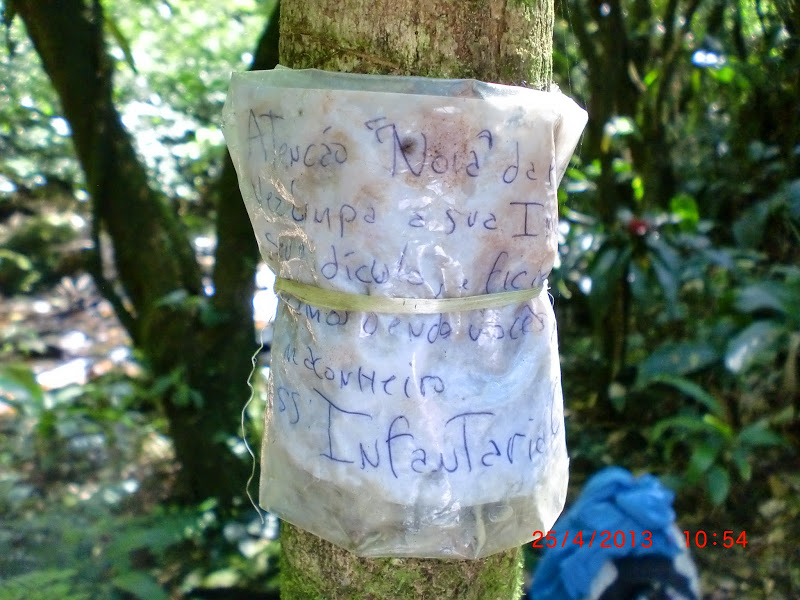 Atencão "Noia" da
a sua I
dícula, e fic
vendo vocês
maconheiro
ss: Infantaria
25/4/2013 10:54